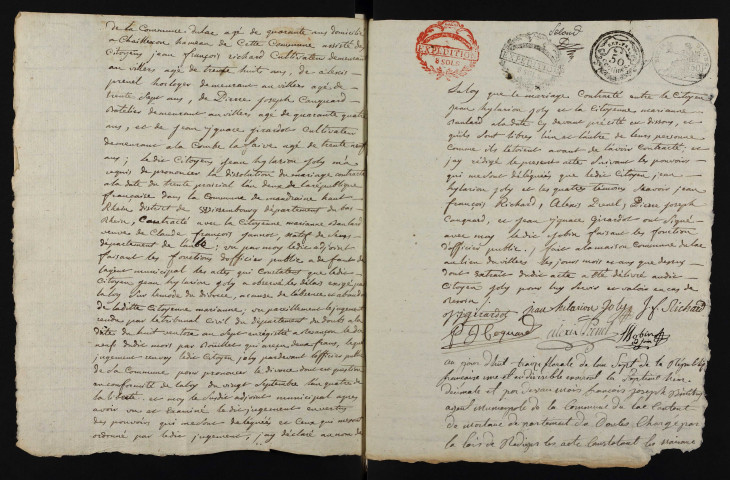 de la Commune dulac agé de quarante ans domicilié
a Chaillexon hameau de Cette Commune assisté des
Citoyens jean françois richard Cultivateur demeurant
au villers agé de trente huit ans, de alexis
prenel horloger demeurant au villers agé de
trente Sept ans, de Pierre Joseph Coquard
demeurant au villers agé de quarante quatre
ans, et de jean ygnace girardot Cultivateur
demeurant ala Combe la agé de trente neuf
ans; ledit Citoyens jean hylarion joly m'a
requis de prononcer la dissolution du mariage contracté
ala date du trente prairial lan deux de la république
française dans la Commune de haut
Rhein district de Wissembourg département du bas
Rhein, Contracté avec la Citoyenne marianne baulard
veuve de Claude françois jannot natif de
département de ; vu par moy ledit adjoint
faisant les fonctions d'officier public a defaut de
lagent municipal les actes qui Constatent que ledit
Citoyen jean hylarion joly a observé les délais exigé par
la loy sur lenvoie de divorce, acause de labsence et abandon
de laditte Citoyenne marianne; vu pareillement le jugement
rendu par le tribunal Civil du département du doubs ala
date du huit ventose an Sept enregistré a besancon le dix
neuf dudit mois par Bouillet qui a reçu deux francs, lequel
jugement renvoy ledit Citoyen joly pardevant l'officier public
de la Commune pour prononcer le divorce dont est question
en conformité de la loy du vingt Septembre lan quatre de
la liberté. et moy le Susdit adjoint municipal agres
avoir vu et Examiné le dit jugement en vertu
des pouvoirs qui me sont delegués et Ceux qui me sont
ordonné par ledit jugement, j'ay déclaré au nom de
EXPEDITION
5 SOLS
la loy que le mariage Contracté entre le Citoyen
jean hylarion joly et la Citoyenne marianne
baulard ala date cy devant précité est dissous, et
quils sont libres lun et lautre de leurs personne
comme ils létoient avant de lavoir contracté, et
jay rédigé le présent acte Suivant les pouvoirs
qui me sont délégués que ledit Citoyen jean
hylarion joly et les quatres témoins Scavoir jean
françois Richard, Alexis Prenel, Pierre joseph
Coquard, et jean ygnace girardot ont Signé
avec moy ledit jobin faisant les fonction
d'officier public; fait ala maison commune du lac
au lieu du villers les jours mois et ans que dessus
dont extrait dudit acte a été délivré audit
Citoyen joly pour luy Servir et valoir en cas de
besoin
girardot jean hilarion joly J f Richard
P J Coquard alexis Prenel Jobin
au jour d'huit treize florale de lan Sept de la République
francaise une et indivisible environt la Septient heur
decimale et par devent mois francois joseph
agent municipale de la commune du lac Canton
de mortaue departement du Doubs Charge par
la lois de Rediger les acte Constatent les naisance